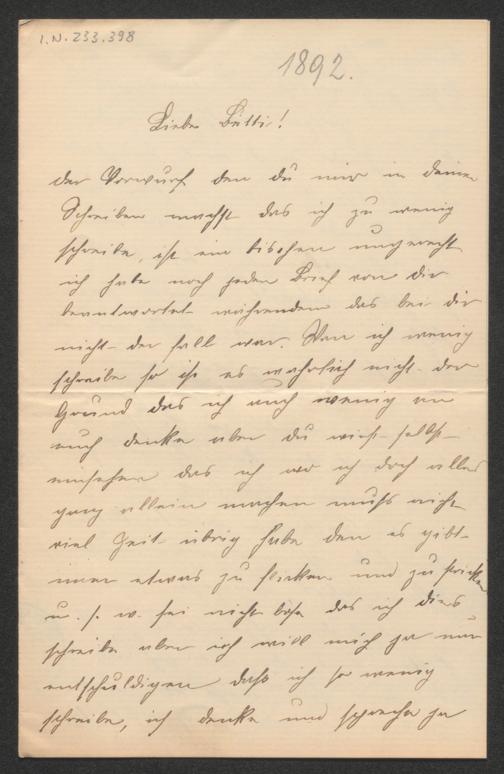 I.N. 233.398
1892.
Liebe Betti!
der Vorwurf den du mir in deinen
Schreiben machst das ich zu wenig
schreibe, ist ein bischen ungerecht
ich habe noch jeden Brief von dir
beantwortet währendem das bei dir
nicht der fall war. Wen ich wenig
schreibe so ist es wahrlich nicht der
Grund das ich auch wenig an
euch denke aber du wirst selbst
einsehen das ich wo ich doch alles
ganz allein machen muß nicht
viel Zeit übrig habe den es gibt
imer etwas zu flicken und zu stricken
u. s. w. sei nicht böse das ich dies
schreibe aber ich will mich ja nur
entschuldigen daß ich so wenig
schreibe, ich denke und spreche ja